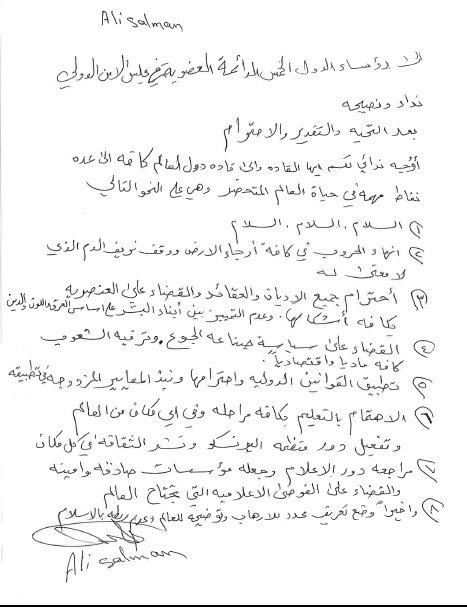 Ali Salman
الى رؤساء الدول الخمس الدائمة العضوية في مجلس الامن الدولي
نداء ونصيحه
بعد التحيه والتقدير والاحترام
أوجه ندائي لكم ايها القاده والى قاده دول العالم كافه الى عده
نقاط مهمه في حياة العالم المتحضر وهي على النحو التالي
١) السلام . السلام . السلام
٢) انهاء الحروب في كافة أرجاء الارض ووقف نزيف الدم الذي
لا معنى له
٣) أحترام جميع الاديان والعقائد والقضاء على العنصريه
بكافه أشكالها. وعدم التمييز بين أبناء البشر على اساس العرق واللون والدين
٤) القضاء على سياسة صناعه الجوع. وترفيه الشعوب
كافه ماديا واقتصادياً.
٥) تطبيق القوانين الدوليه واحترامها ونبذ المعايير المزدوجه في تطبيقه
٦) الاهتمام بالتعليم بكافه مراحله وفي اي مكان من العالم
وتفعيل دور منظمه اليونسكو ونشر الثقافه في كل مكان
٧) مراجعه دور الاعلام وجعله مؤسسات صادقه وامينه
والقضاء على الفوضى الاعلاميه التي تجتاح العالم
٨) واخيراً وضع تعريف محدد للارهاب وتوضيحه للعالم وعدم ربطه بالاسلام
Ali Salman